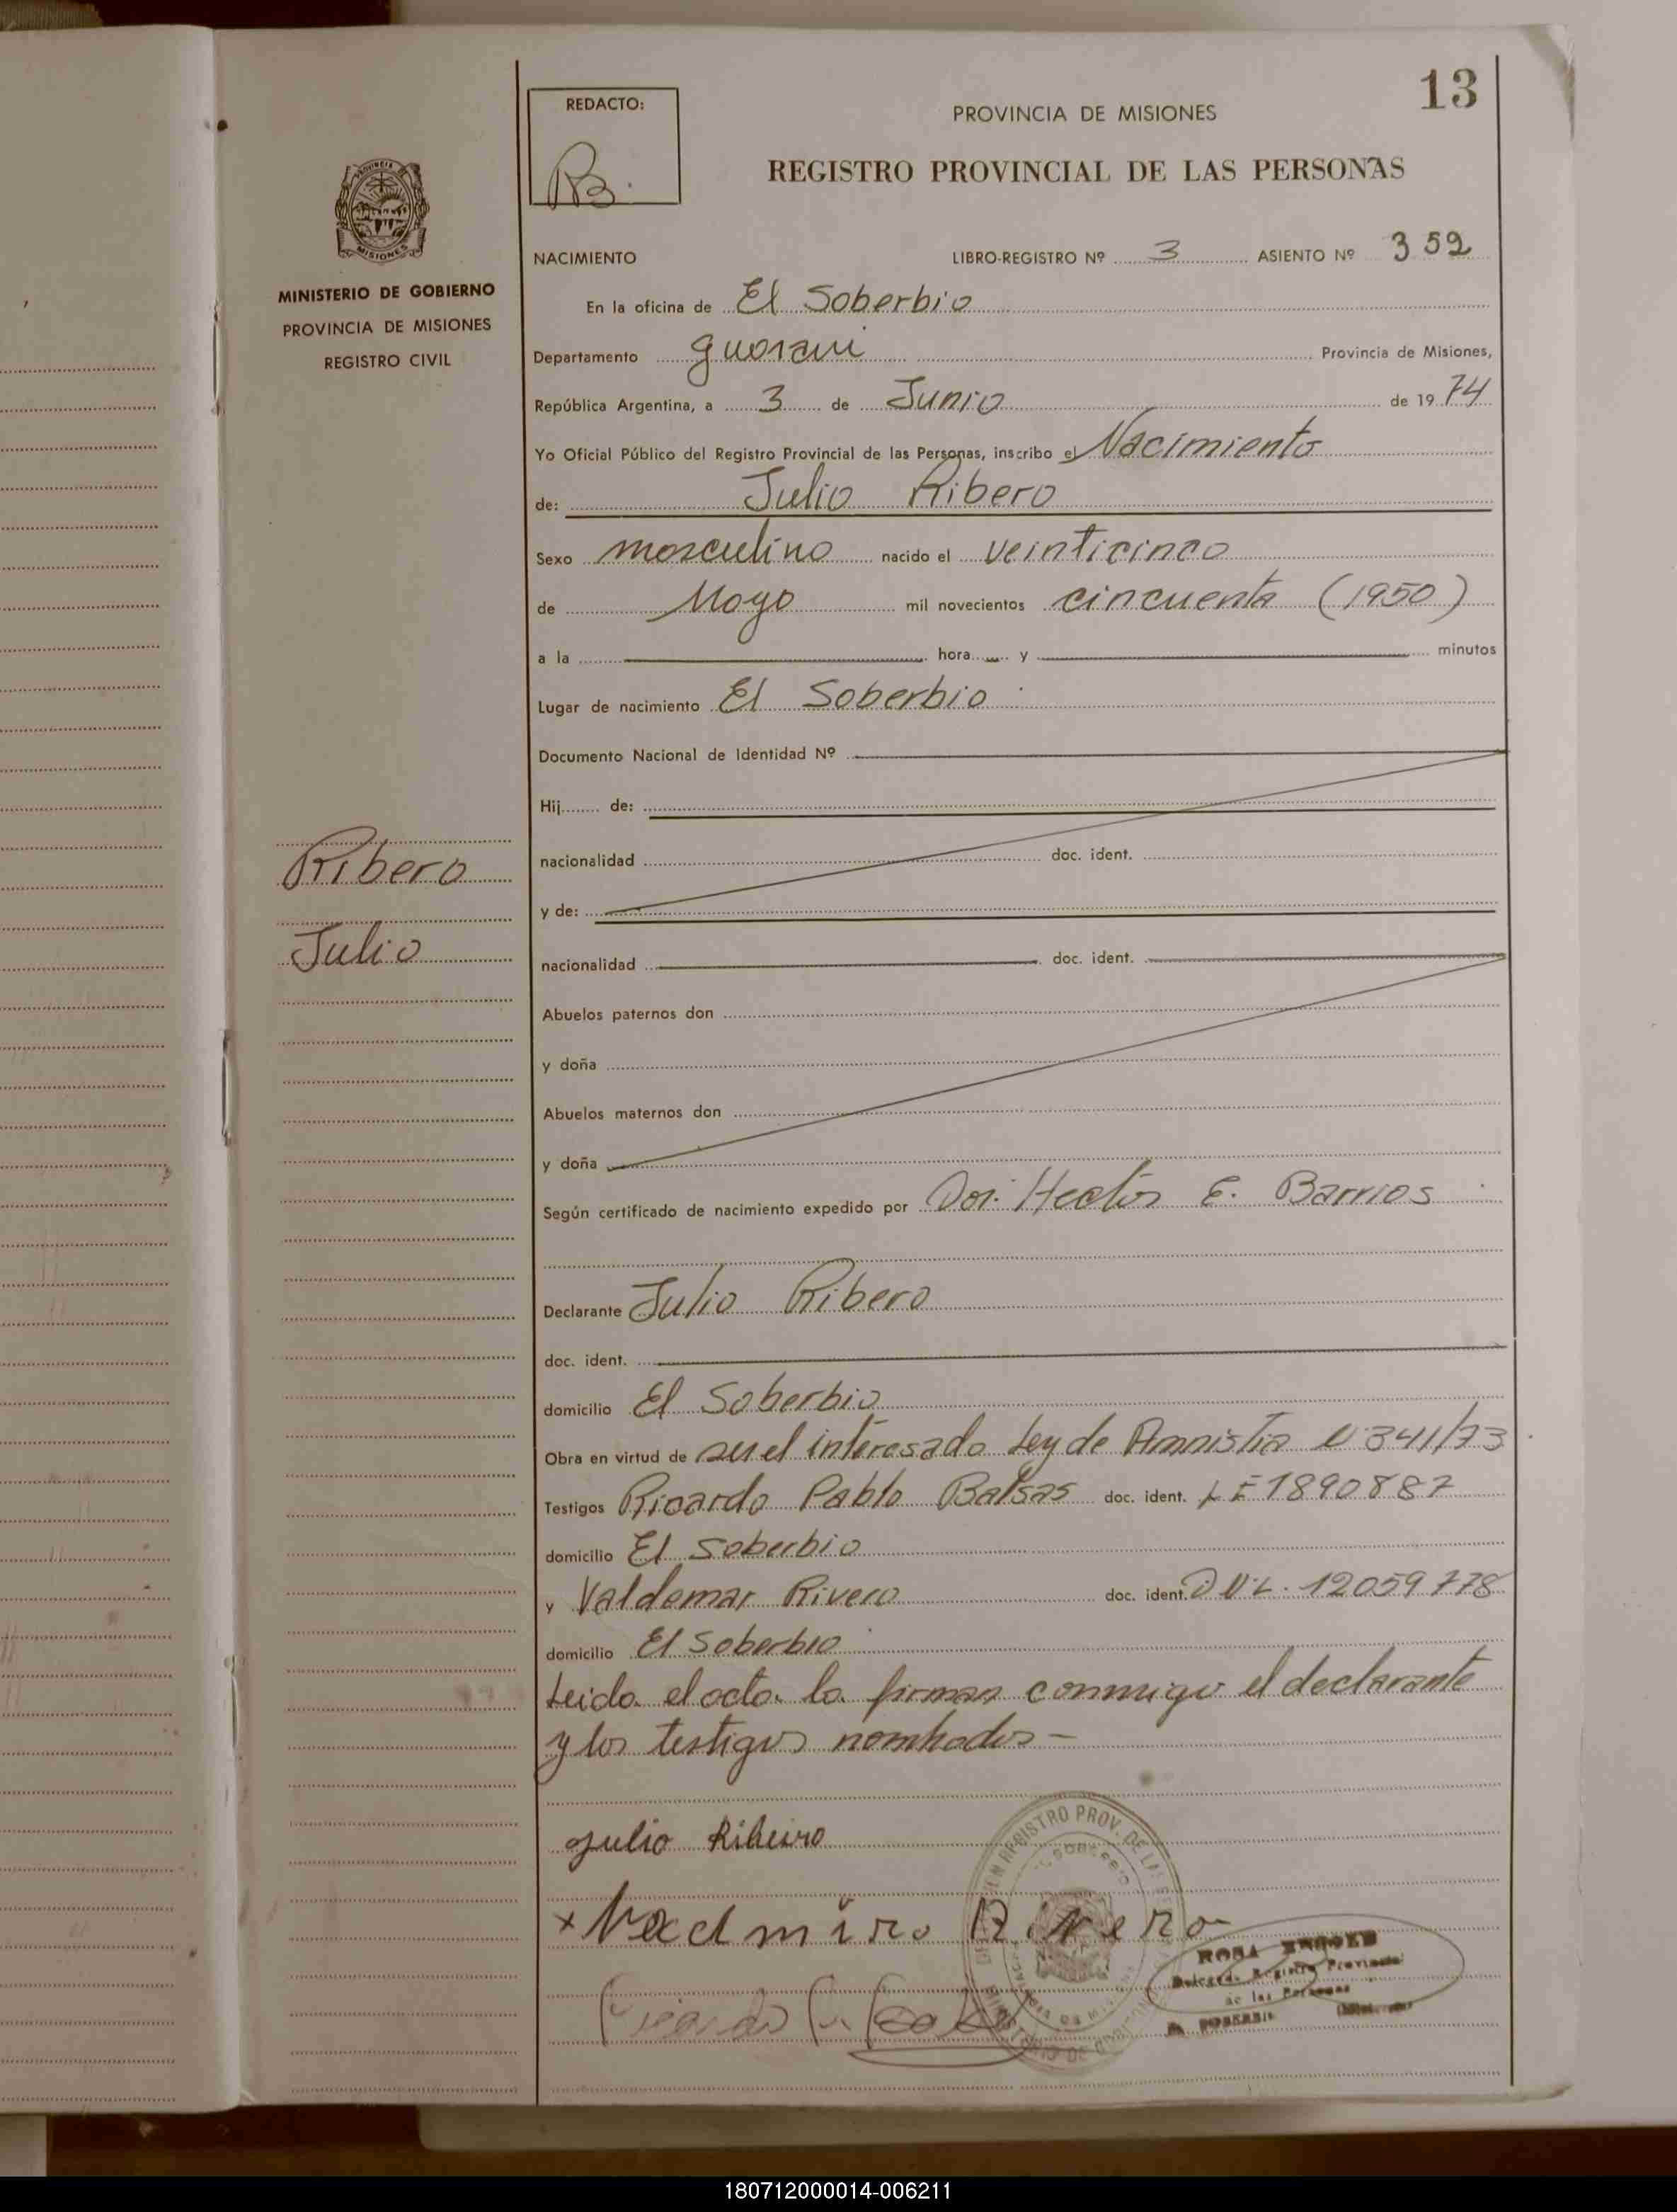 13
REDACTO:
PROVINCIA DE MISIONES
REGISTRO PROVINCIAL DE LAS PERSONAS
MISIONES
MINISTERIO DE GOBIERNO
PROVINCIA DE MISIONES
REGISTRO CIVIL
NACIMIENTO LIBRO-REGISTRO Nº 3 ASIENTO Nº 352
En la oficina de El Soberbio
Departamento guarani Provincia de Misiones,
República Argentina, a 3 de Junio de 1974
Yo Oficial Público del Registro Provincial de las Personas, inscribo el Nacimiento
de: Julio Ribero
Sexo masculino nacido el veinticinco
de Mayo mil novecientos cincuenta (1950)
a la hora y minutos
Lugar de nacimiento El Soberbio
Documento Nacional de Identidad Nº
Hij de:
nacionalidad doc. ident.
y de:
nacionalidad doc. ident.
Ribero
Julio
Abuelos paternos don
y doña
Abuelos maternos don
y doña
Según certificado de nacimiento expedido por Dor. Hector E. Barrios
Declarante Julio Ribero
doc. ident.
domicilio El Soberbio
Obra en virtud de ser el interesado Ley de Amnistia N 341/73
Testigos Ricardo Pablo Balsas doc. ident. LE 1890887
domicilio El Soberbio
y Valdemar Rivero doc. ident. D.N.I. 12059778
domicilio El Soberbio
Leida el acta la firman conmigo el declarante
y los testigos nombrados —
Julio Ribeiro
REGISTRO PROV. DE LAS
ROSA
Registro Provincial
de las Personas
180712000014-006211